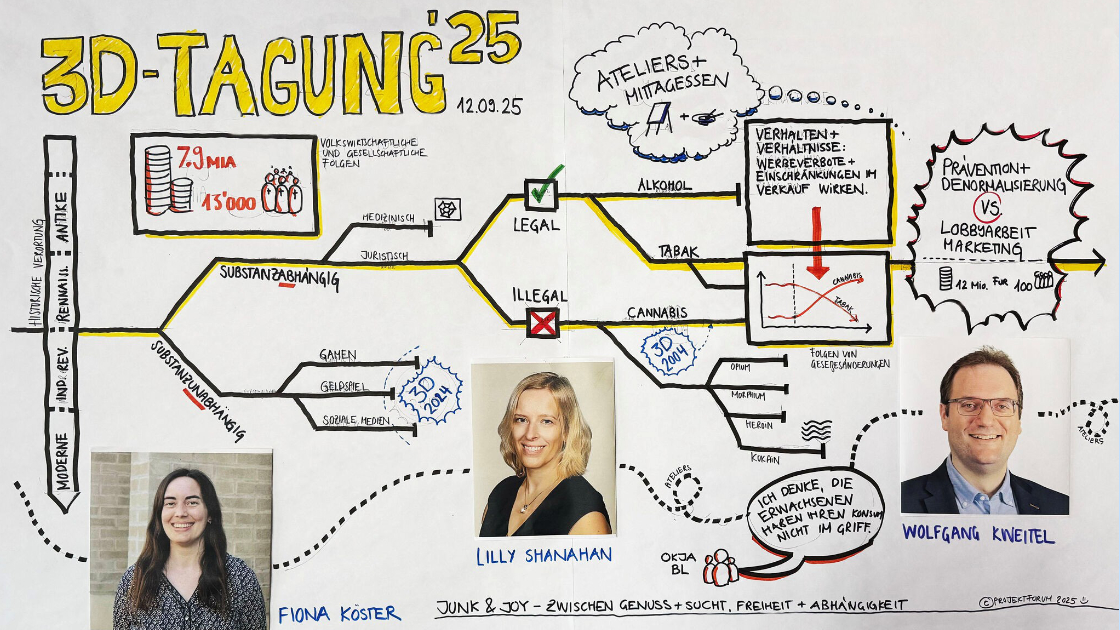 3D-TAGUNG '25
12.09.25
ATELIERS +
MITTAGESSEN
+
HISTORISCHE VERORTUNG
ANTIKE
RENNAISS.
IND. REV.
MODERNE
7.9 MIA
13'000
VOLKSWIRTSCHAFTLICHE
UND GESELLSCHAFTLICHE
FOLGEN
MEDIZINISCH
JURISTISCH
SUBSTANZABHÄNGIG
SUBSTANZUNABHÄNGIG
GAMEN
GELDSPIEL
SOZIALE MEDIEN
3D
2024
LEGAL
ILLEGAL
ALKOHOL
TABAK
CANNABIS
3D
2004
OPIUM
MORPHIUM
HEROIN
KOKAIN
VERHALTEN +
VERHÄLTNISSE:
WERBEVERBOTE +
EINSCHRÄNKUNGEN IM
VERKAUF WIRKEN.
CANNABIS
TABAK
FOLGEN VON
GESETZESÄNDERUNGEN
PRÄVENTION +
DENORMALISIERUNG
VS.
LOBBYARBEIT
MARKETING
12 MIO. FÜR 100
ATELIERS
ATELIERS
ICH DENKE, DIE
ERWACHSENEN
HABEN IHREN KONSUM
NICHT IM GRIFF.
OKJA
BL
FIONA KÖSTER
LILLY SHANAHAN
WOLFGANG KWEITEL
JUNK & JOY – ZWISCHEN GENUSS + SUCHT, FREIHEIT + ABHÄNGIGKEIT
© PROJEKTFORUM 2025